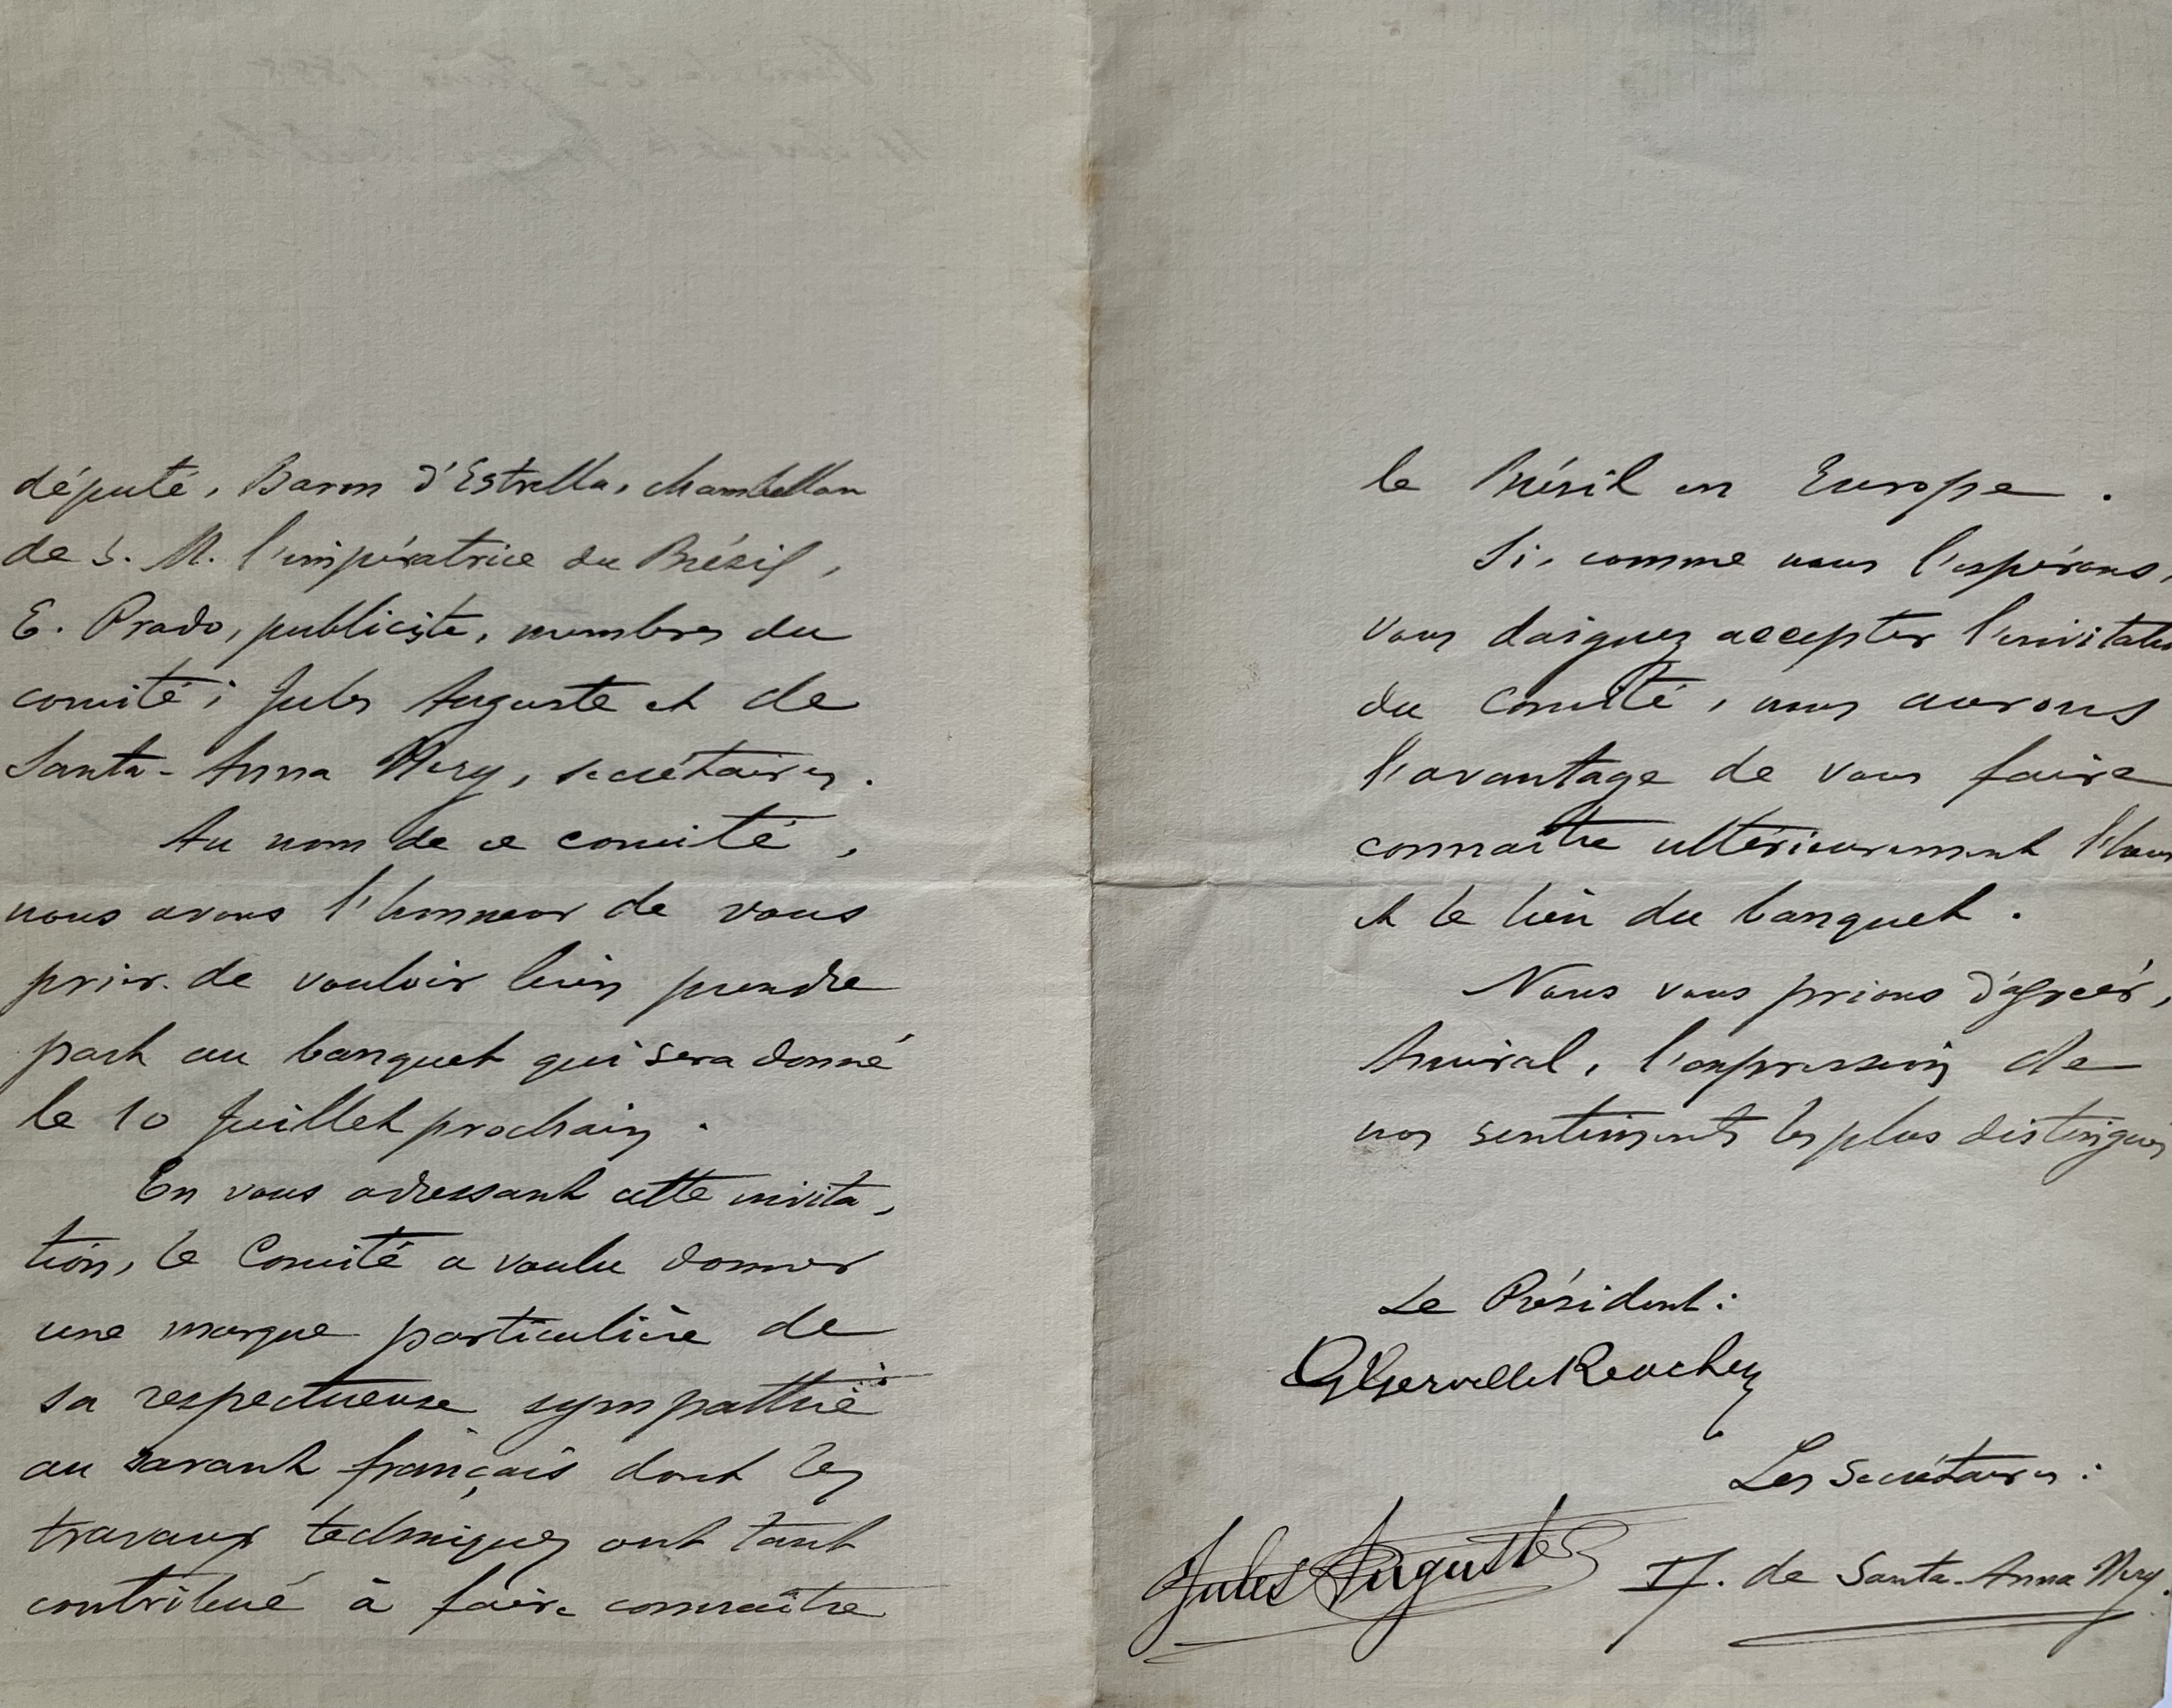 député, Baron d'Estrella, chambellan
de S. M. l'impératrice du Brésil,
E. Prado, publiciste, membres du
comité ; Jules Auguste et de
Santa-Anna Nery, secrétaires.
Au nom de ce comité,
nous avons l'honneur de vous
prier de vouloir bien prendre
part au banquet qui sera donné
le 10 Juillet prochain.
En vous adressant cette invita-
tion, le Comité a voulu donner
une marque particulière de
sa respectueuse sympathie
au savant français dont les
travaux techniques ont tant
contribué à faire connaître
le Brésil en Europe.
Si, comme nous l'espérons,
vous daignez accepter l'invitatio
du Comité, nous aurons
l'avantage de vous faire
connaître ultérieurement l'heu
et le lieu du banquet.
Nous vous prions d'agréer,
Amiral, l'expression de
nos sentiments les plus distingués
Le Président :
Gerville Réache
Les Secrétaires :
Jules Auguste
F. J. de Santa-Anna Nery.